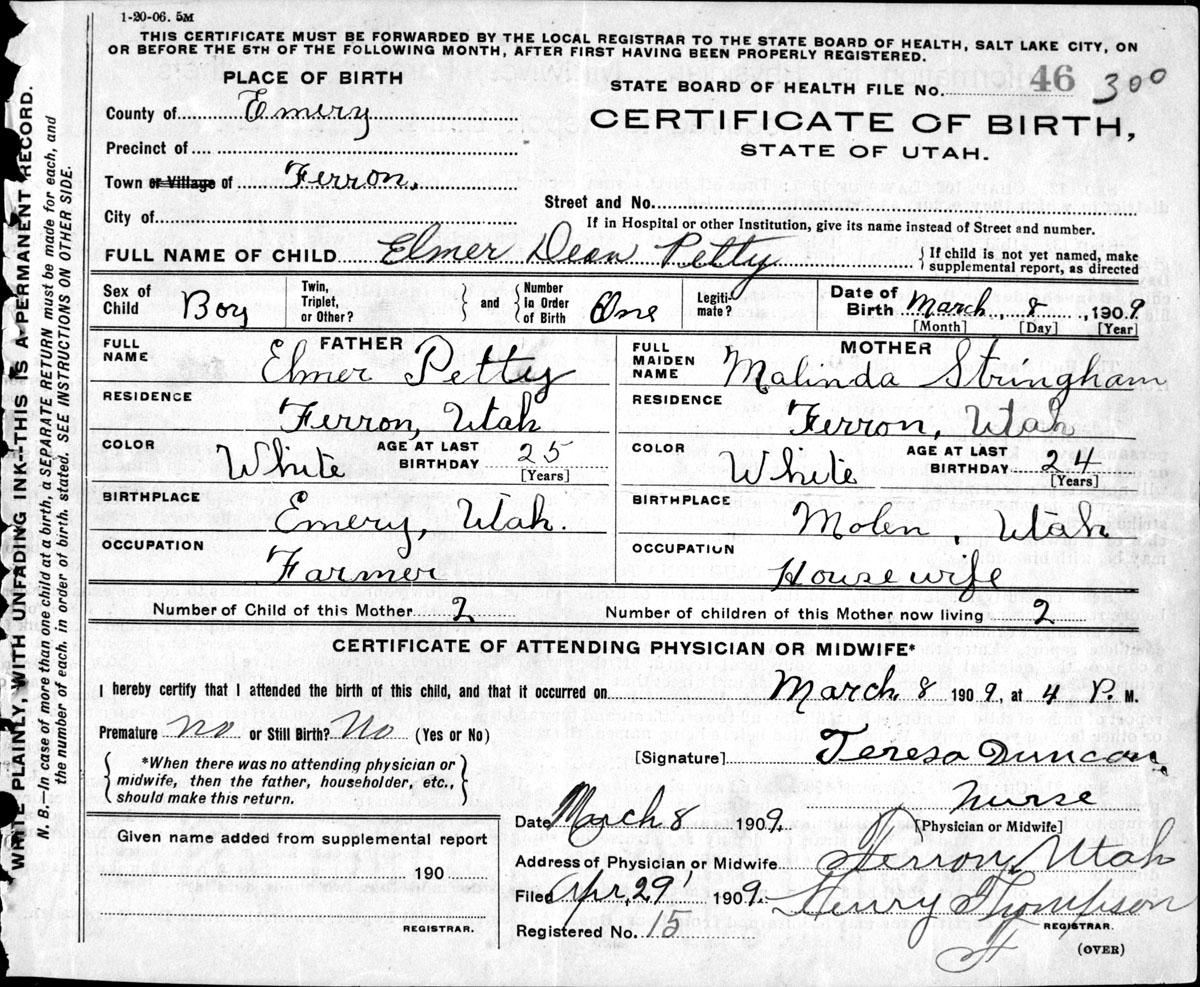 1-20-06. 5M
THIS CERTIFICATE MUST BE FORWARDED BY THE LOCAL REGISTRAR TO THE STATE BOARD OF HEALTH, SALT LAKE CITY, ON
OR BEFORE THE 5TH OF THE FOLLOWING MONTH, AFTER FIRST HAVING BEEN PROPERLY REGISTERED.
PLACE OF BIRTH
STATE BOARD OF HEALTH FILE No. 46 300
County of Emery
CERTIFICATE OF BIRTH,
STATE OF UTAH.
Precinct of
Town or Village of Ferron,
Street and No.
City of
If in Hospital or other Institution, give its name instead of Street and number.
FULL NAME OF CHILD Elmer Dean Petty { If child is not yet named, make
supplemental report, as directed
Sex of Child Boy Twin, Triplet, or Other? } and { Number in Order of Birth One Legiti-mate? Date of Birth March, 8, 1909
[Month] [Day] [Year]
FATHER
FULL NAME Elmer Petty
RESIDENCE
Ferron, Utah
COLOR White AGE AT LAST BIRTHDAY 25
[Years]
BIRTHPLACE
Emery, Utah.
OCCUPATION
Farmer
MOTHER
FULL MAIDEN NAME Malinda Stringham
RESIDENCE
Ferron, Utah
COLOR White AGE AT LAST BIRTHDAY 24
[Years]
BIRTHPLACE
Molen, Utah
OCCUPATION
Housewife
Number of Child of this Mother 2 Number of children of this Mother now living 2
CERTIFICATE OF ATTENDING PHYSICIAN OR MIDWIFE*
I hereby certify that I attended the birth of this child, and that it occurred on March 8 1909, at 4 P. M.
Premature no or Still Birth? No (Yes or No)
[Signature] Teresa Duncan
{ *When there was no attending physician or
midwife, then the father, householder, etc.,
should make this return. }
Nurse
Date March 8 1909. [Physician or Midwife]
Given name added from supplemental report
190
REGISTRAR.
Address of Physician or Midwife Ferron, Utah
Filed Apr, 29 1909. Henry Thompson
REGISTRAR.
Registered No. 15
(OVER)
WRITE PLAINLY, WITH UNFADING INK-THIS IS A PERMANENT RECORD.
N. B.—In case of more than one child at a birth, a SEPARATE RETURN must be made for each, and
the number of each, in order of birth, stated. SEE INSTRUCTIONS ON OTHER SIDE.